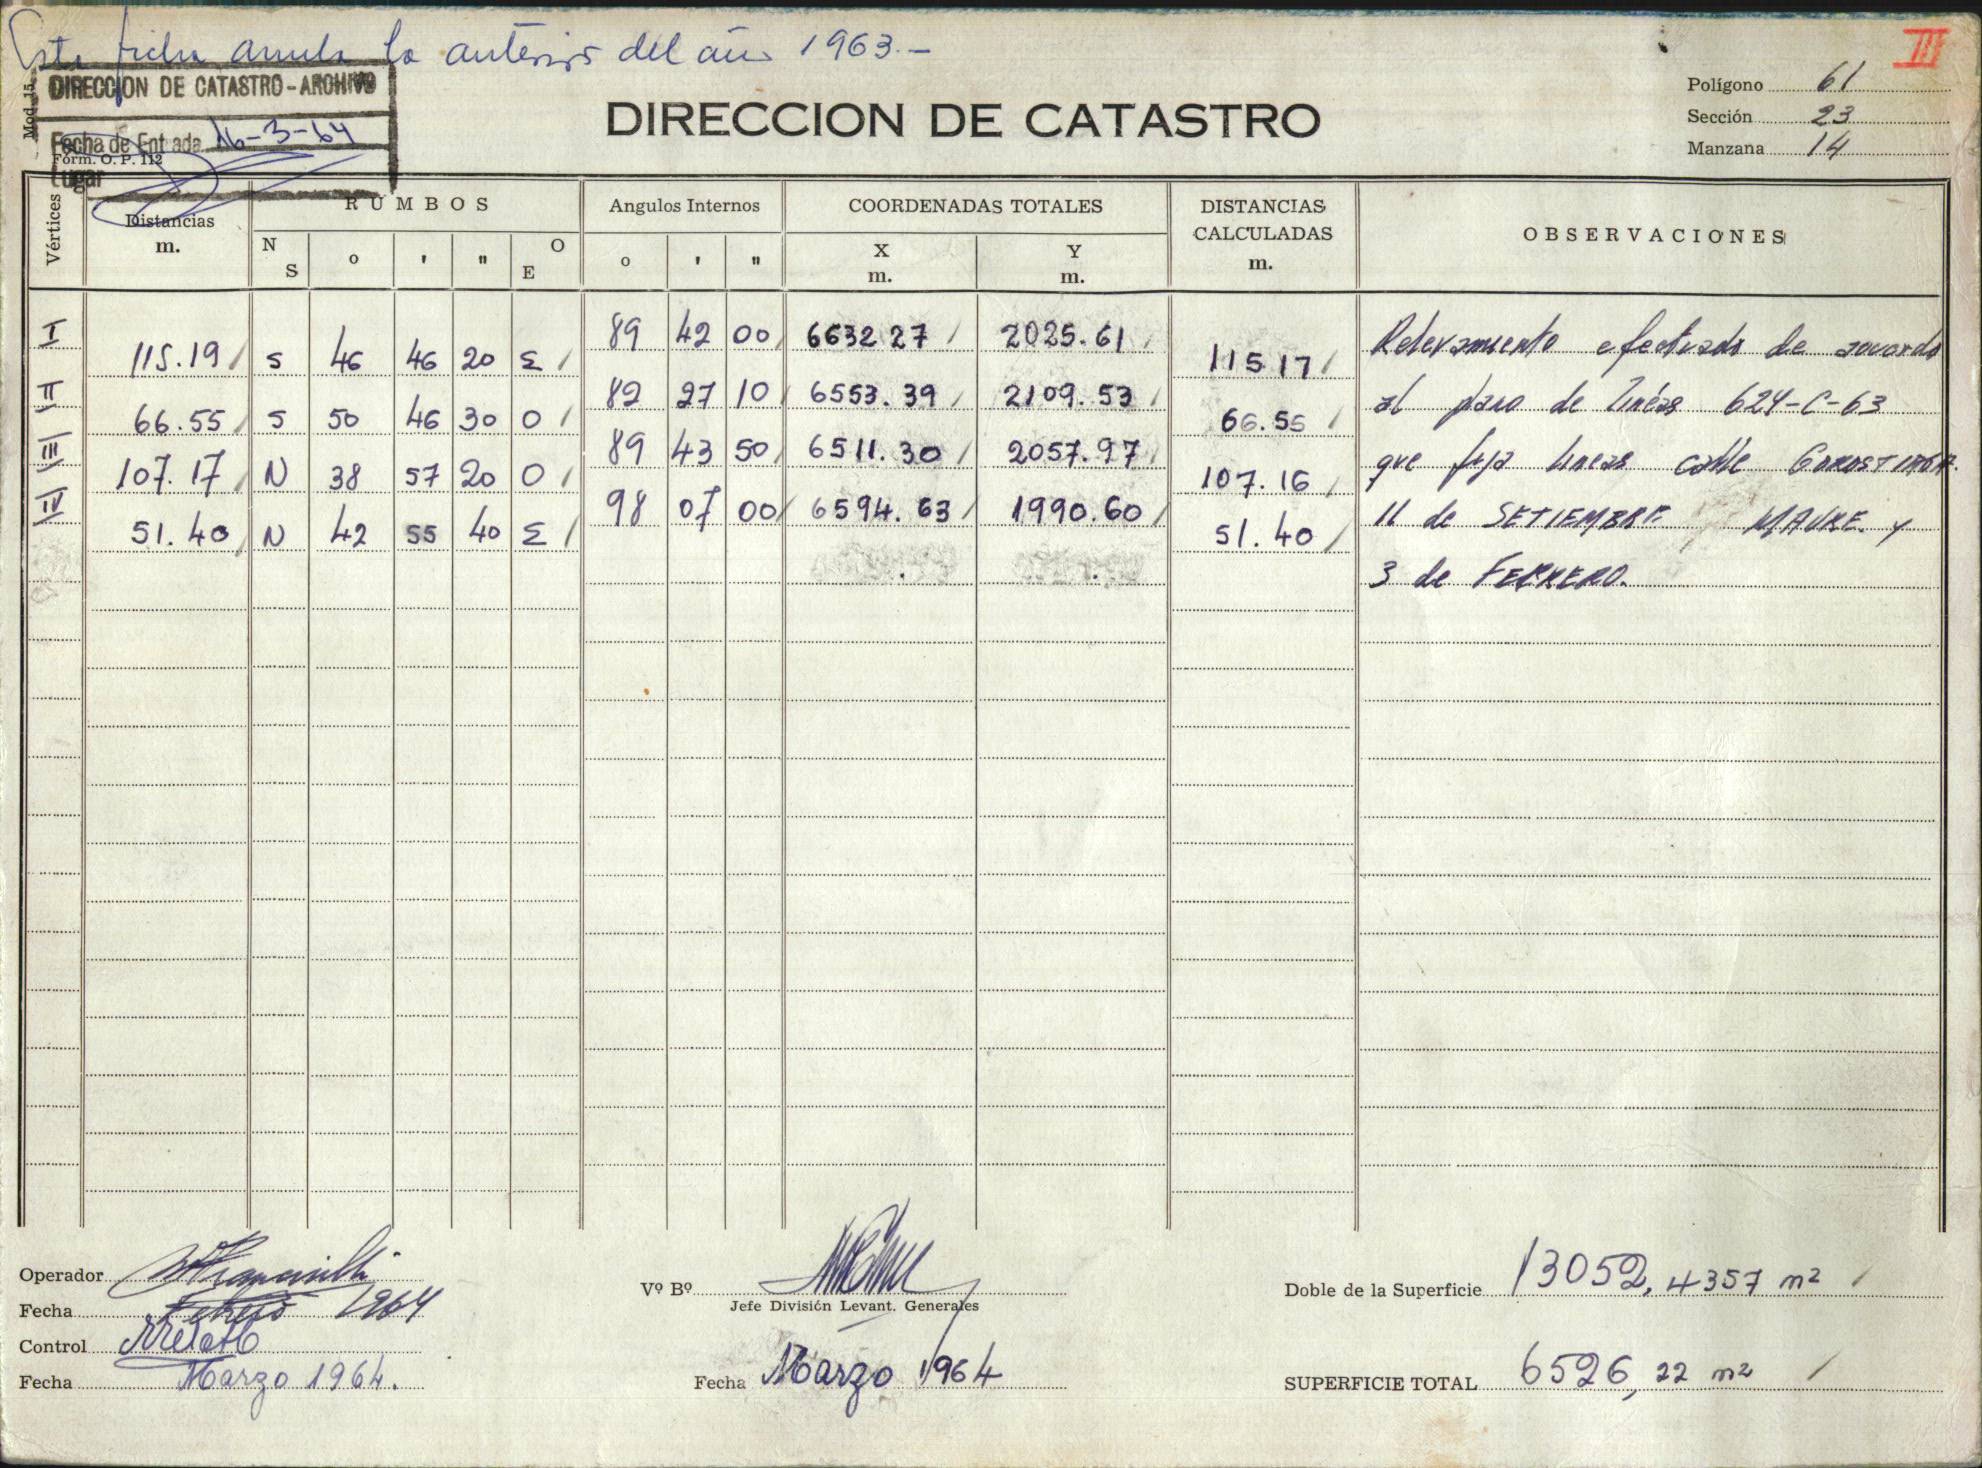 Esta ficha anula la anterior del año 1963.-
III
Mod. 15
DIRECCION DE CATASTRO - ARCHIVO
Fecha de Entrada 16-3-64
Form. O. P. 112
Lugar
DIRECCION DE CATASTRO
Polígono 61
Sección 23
Manzana 14
Vértices Distancias m. RUMBOS N S ° ' " O E Angulos Internos ° ' " COORDENADAS TOTALES X m. Y m. DISTANCIAS CALCULADAS m. OBSERVACIONES
I 89 42 00 6632.27 2025.61
115.19 S 46 46 20 E 115.17
II 82 27 10 6553.39 2109.53
66.55 S 50 46 30 O 66.55
III 89 43 50 6511.30 2057.97
107.17 N 38 57 20 O 107.16
IV 98 07 00 6594.63 1990.60
51.40 N 42 55 40 E 51.40
Relevamiento efectuado de acuerdo
al plano de líneas 624-C-63
que fija líneas calle GOROSTIAGA
11 de SETIEMBRE MAURE y
3 de FEBRERO.
Operador
Fecha Febrero 1964
Control
Fecha Marzo 1964.
Vº Bº
Jefe División Levant. Generales
Fecha Marzo 1964
Doble de la Superficie 13052,4357 m2
SUPERFICIE TOTAL 6526,22 m2